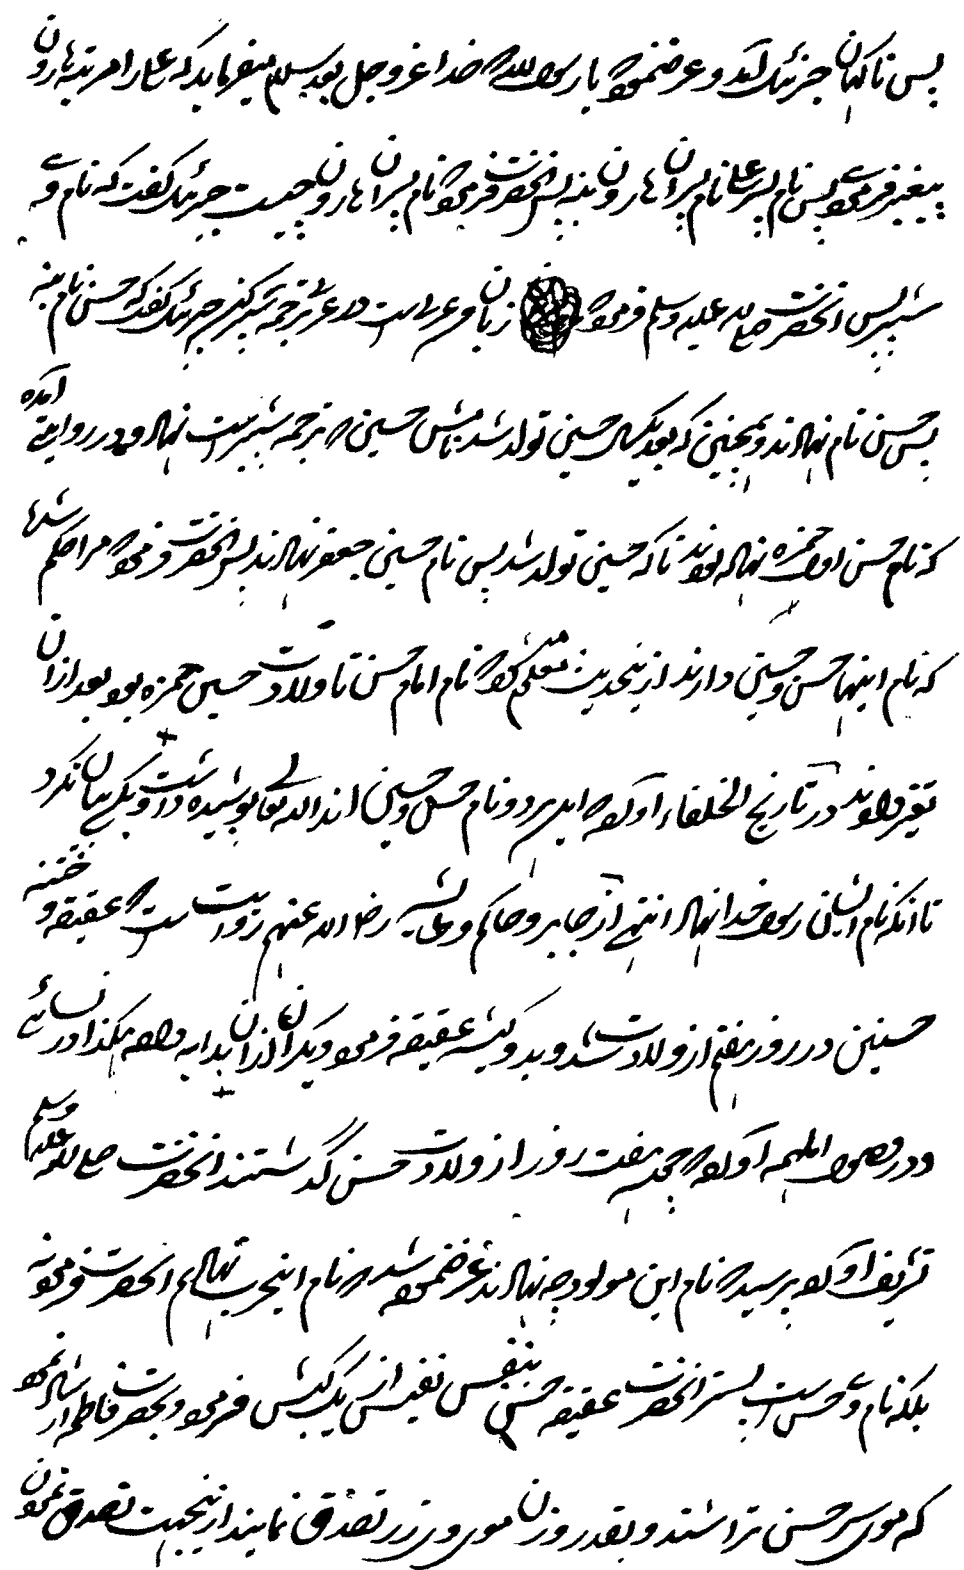 پس ناگهان جبرئیل آمد و عرض نمود یا رسول الله خدا عز و جل بعد سلام میفرماید که علی را مرتبه هارون
پیغمبر فرمودی پس نام پسر علی نام پسران هارون بنه پس آنحضرت فرمود نام پسران هارون چیست جبرئیل گفت که نام وی
شبر پس آنحضرت صلی الله علیه وسلم فرمود زبان من عربی است در عربی ترجمه شبر کن جبرئیل گفت که حسن نام بنه
پس حسن نام نهادند و همچنین که بعد یکسال حسین تولد شد نامش حسین که ترجمه شبیر است نهاد و در روایتی آمده
که نام حسن اول حمزه نهاده بودند تا که حسین تولد شد پس نام حسین جعفر نهادند پس آنحضرت فرمود مرا حکم شد
که نام اینها حسن و حسین دارند ازین حدیث معلوم شد که نام امام حسن تا ولادت حسین حمزه بود بعد ازان
تغیر دادند در تاریخ الخلفاء آورده که این هر دو نام حسن و حسین الله تعالی پوشیده داشت و یکی بیان نکرد
تا آنکه نام ایشان رسول خدا نهاد انتهی از جابر و حاکم و عایشه رضی الله عنهم روایت است که عقیقه و ختنه
حسنین در روز هفتم از ولادت شد و بدو کبش عقیقه فرمود و یک ران ازان بدایه داد هکذا در نسائی
و در فصول المهمه آورده چون هفت روز از ولادت حسن گذشتند آنحضرت صلی الله علیه وسلم
تشریف آورد پرسید که نام این مولود چه نهادند عرض نمود شد که نام این حرب نهادیم آنحضرت فرمود نه
بلکه نام وی حسن است پستر آنحضرت عقیقه حسن بنفس نفیس از یک کبش فرمود و بحضرت فاطمه ارشاد نمود
که موی سر حسن تراشند و بقدر وزن موی وی زر تصدق نمایند ازینجهت تصدق نمودن